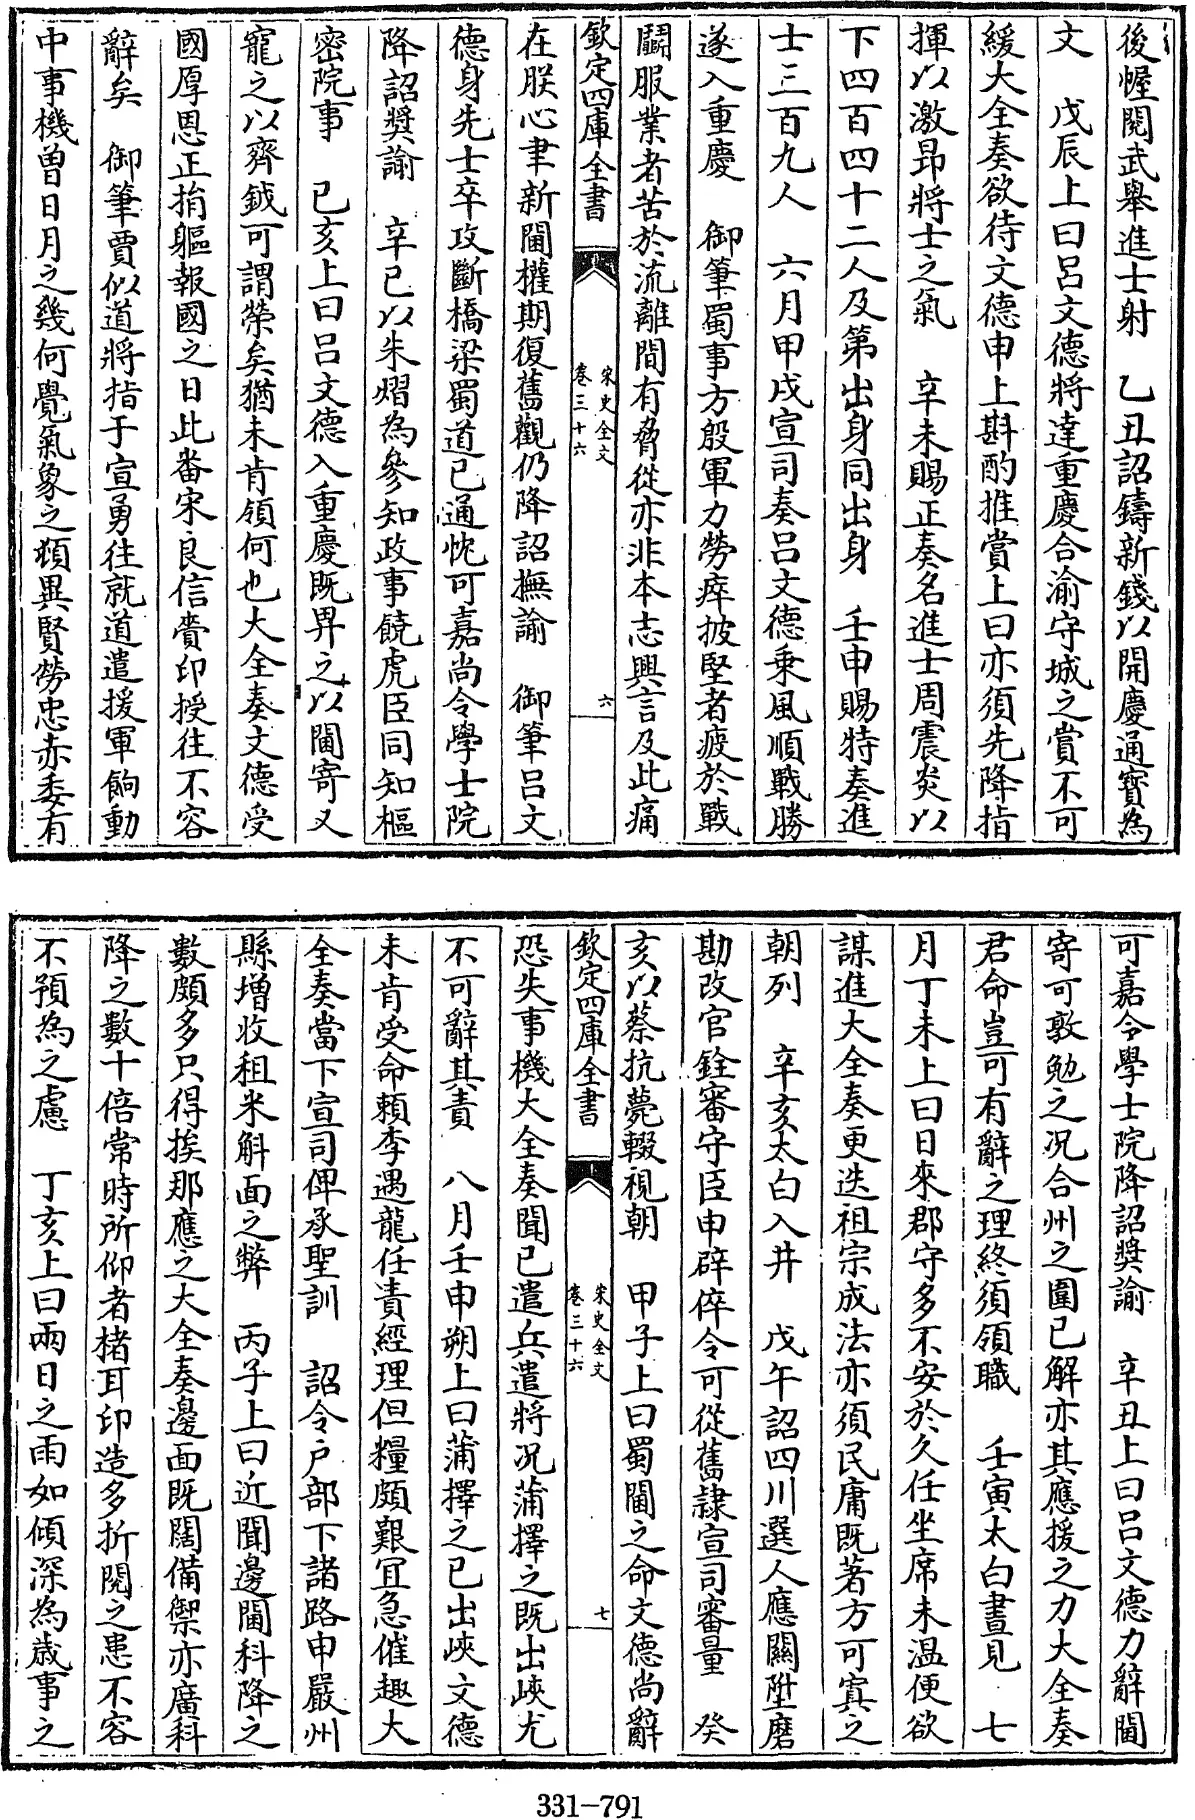 後幄閱武舉進士射　乙丑詔鑄新錢以開慶通寳為
文　戊辰上曰呂文德將達重慶合渝守城之賞不可
緩大全奏欲待文德申上斟酌推賞上曰亦須先降指
揮以激昻將士之氣　辛未賜正奏名進士周震炎以
下四百四十二人及第出身同出身　壬申賜特奏進
士三百九人　六月甲戌宣司奏呂文德乘風順戰勝
遂入重慶　御筆蜀事方殷軍力勞瘁披堅者疲於戰
鬭服業者苦於流離間有脅從亦非本志興言及此痛
欽定四庫全書　宋史全文　卷三十六　六
在朕心聿新閫權期復舊觀仍降詔撫諭　御筆呂文
德身先士卒攻斷橋梁蜀道已通忱可嘉尚令學士院
降詔奬諭　辛巳以朱熠為參知政事饒虎臣同知樞
密院事　已亥上曰呂文德入重慶既畀之以閫寄又
寵之以齊鉞可謂榮矣猶未肯領何也大全奏文德受
國厚恩正捐軀報國之日此畨宋良信賫印授往不容
辭矣　御筆賈似道將指于宣勇往就道遣援軍餉動
中事機曾日月之幾何覺氣象之頓異賢勞忠赤委有
可嘉令學士院降詔奬諭　辛丑上曰呂文德力辭閫
寄可敦勉之况合州之圍已解亦其應援之力大全奏
君命豈可有辭之理終須領職　壬寅太白晝見　七
月丁未上曰日來郡守多不安於久任坐席未温便欲
謀進大全奏更迭祖宗成法亦須民庸既著方可寘之
朝列　辛亥太白入井　戊午詔四川選人應關陞磨
勘改官銓審守臣申辟倅令可從舊隷宣司審量　癸
亥以蔡抗薨輟視朝　甲子上曰蜀閫之命文德尚辭
欽定四庫全書　宋史全文　卷三十六　七
恐失事機大全奏聞已遣兵遣將况蒲擇之既出峽尤
不可辭其責　八月壬申朔上曰蒲擇之已出峽文德
未肯受命賴李遇龍任責經理但糧頗艱宜急催趣大
全奏當下宣司俾承聖訓　詔令户部下諸路申嚴州
縣增收租米斛面之弊　丙子上曰近聞邊閫科降之
數頗多只得挨那應之大全奏邊面既闊備禦亦廣科
降之數十倍常時所仰者楮耳印造多折閱之患不容
不預為之慮　丁亥上曰兩日之雨如傾深為歲事之
331-791